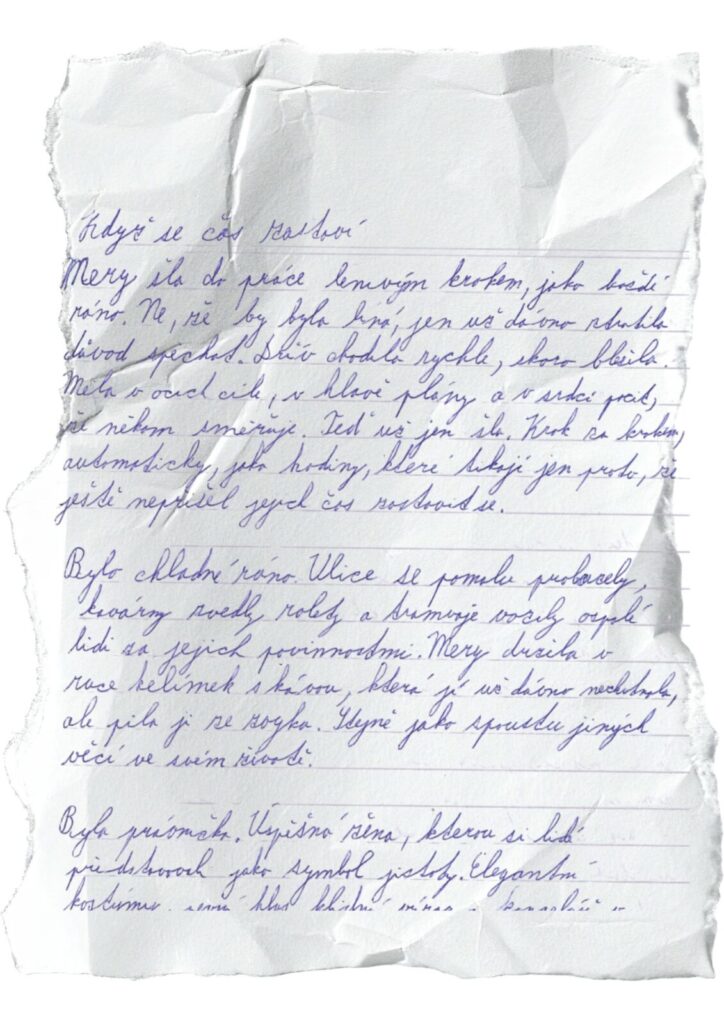 Když se čas zastaví
Mery šla do práce lenivým krokem, jako každé
ráno. Ne, že by byla líná, jen už dávno ztratila
důvod spěchat. Dřív chodila rychle, skoro běžela.
Měla v očích cíle, v hlavě plány a v srdci pocit,
že někam směřuje. Teď už jen šla. Krok za krokem,
automaticky, jako hodiny, které tikají jen proto, že
ještě nepřišel jejich čas zastavit se.
Bylo chladné ráno. Ulice se pomalu probouzely,
kavárny zvedly rolety a tramvaje vozily ospalé
lidi za jejich povinnostmi. Mery držela v
ruce kelímek s kávou, která jí už dávno nechutnala,
ale pila ji ze zvyku. Stejně jako spoustu jiných
věcí ve svém životě.
Byla právnička. Úspěšná žena, kterou si lidé
představovali jako symbol jistoty. Elegantní
kostýmy, pevný hlas, klidný výraz a kancelář v